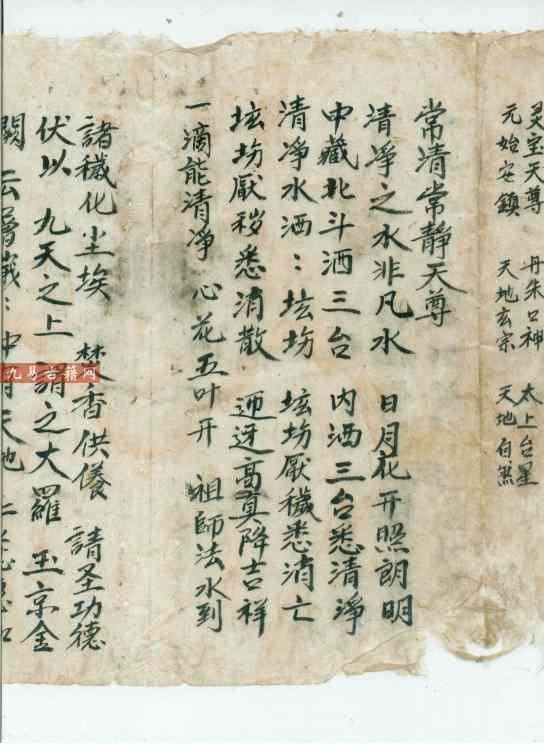 灵宝天尊　丹朱口神　太上台星
元始安鎮　天地玄宗　天地自然
常清常靜天尊
清凈之水非凡水　日月花开照朗明
中藏北斗洒三台　内洒三台悉清淨
清凈水洒：坛坊　坛坊厭穢悉消亡
坛坊厭秽悉消散　迎迓高真降吉祥
一滴能清凈　心花五叶开　祖師法水到
諸穢化尘埃　香供儀　請圣功德
伏以　九天之上　謂之大羅　玉京金
闕　云層　：中　天地
九易古籍网